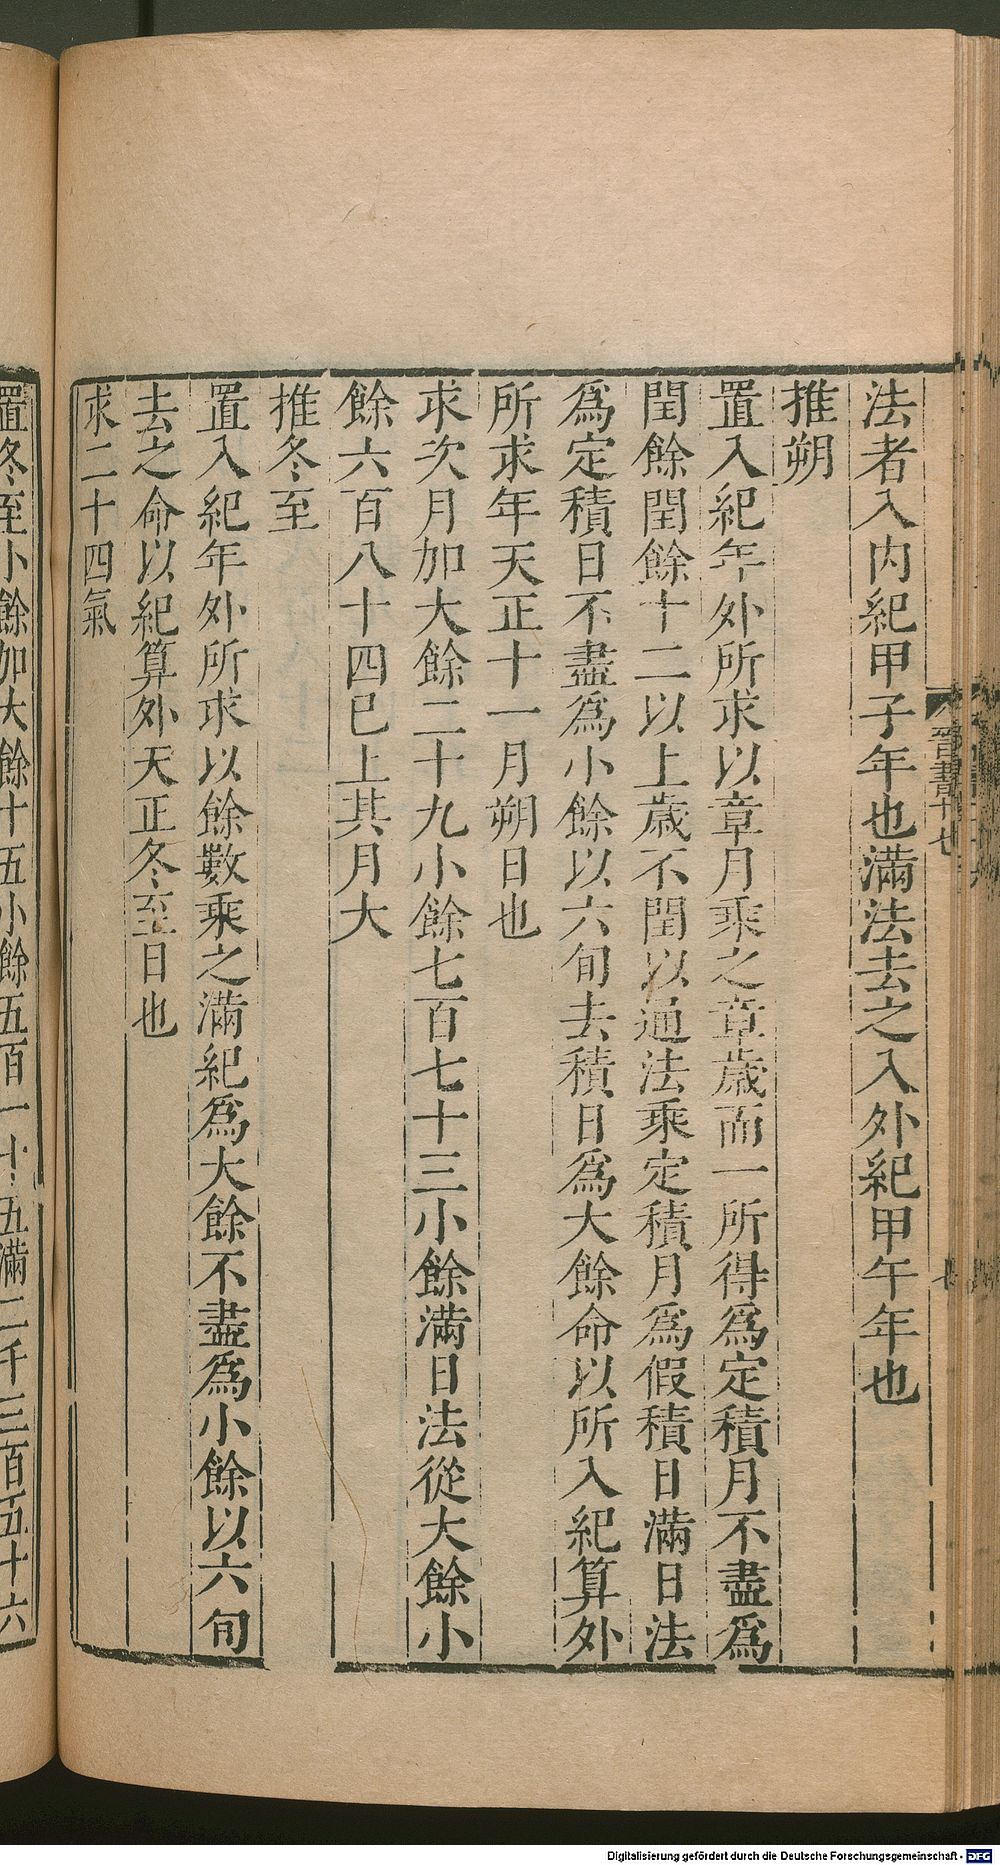 法者入内紀甲子年也滿法去之入外紀甲午年也
推朔
置入紀年外所求以章月乘之章歲而一所得爲定積月不盡爲
閏餘閏餘十二以上歲不閏以通法乘定積月爲假積日滿日法
爲定積日不盡爲小餘以六旬去積日爲大餘命以所入紀算外
所求年天正十一月朔日也
求次月加大餘二十九小餘七百七十三小餘滿日法從大餘小
餘六百八十四已上其月大
推冬至
置入紀年外所求以餘數乘之滿紀爲大餘不盡爲小餘以六旬
去之命以紀算外天正冬至日也
求二十四氣
置冬至小餘加大餘十五小餘五百一十五滿二千三百五十六
晉書十七
Digitalisierung gefördert durch die Deutsche Forschungsgemeinschaft - DFG